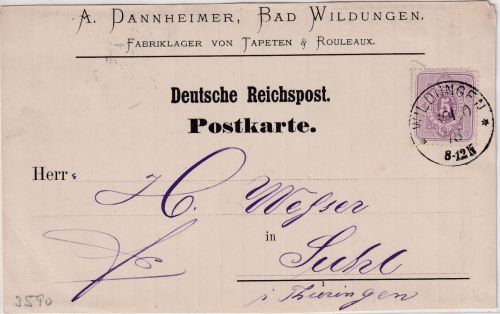 A. Dannheimer, Bad Wildungen.
Fabriklager von Tapeten & Rouleaux.
Deutsche Reichspost.
Postkarte.
WILDUNGEN
8-12 N
Herr
H.
in
Suhl
i Thüringen
3590